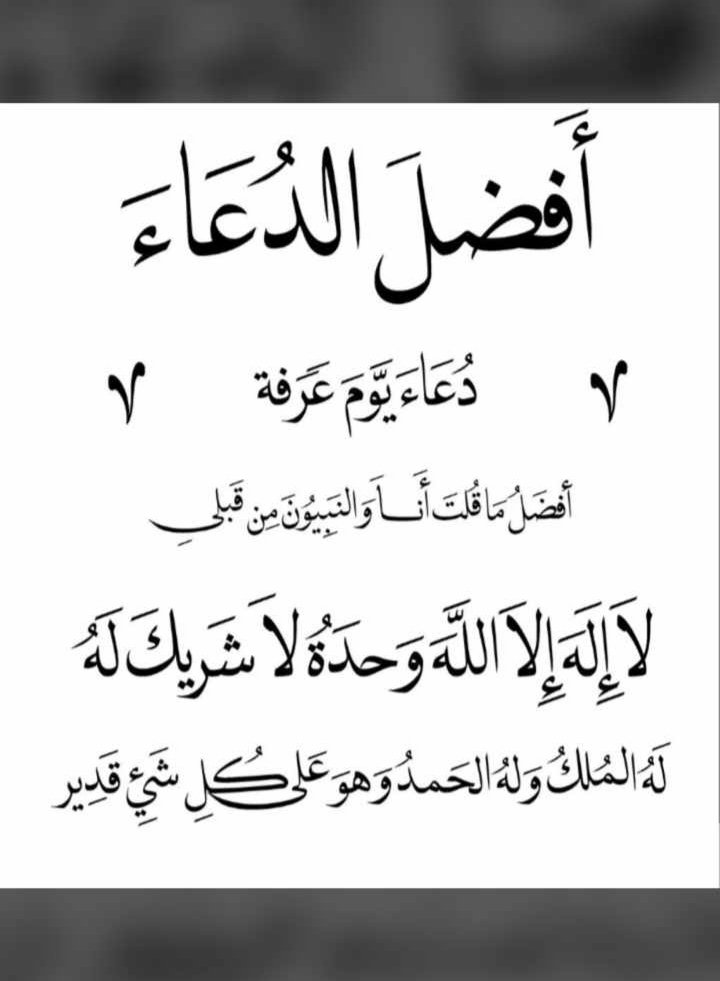 أَفضلَ الدُعَاءَ
دُعَاءَ يَّومَ عَرَفة
أفضَلُ مَا قُلتَ أَنَا وَالنَبِيُونَ مِن قَبلىِ
لاَ إِلَهَ إِلاَ اللَّهَ وَحدَةُ لاَ شَرِيكَ لَهُ
لَهُ المُلكُ وَلهُ الحَمدُ وَهوَ عَلى كُلِ شَيْءٍ قَدِير